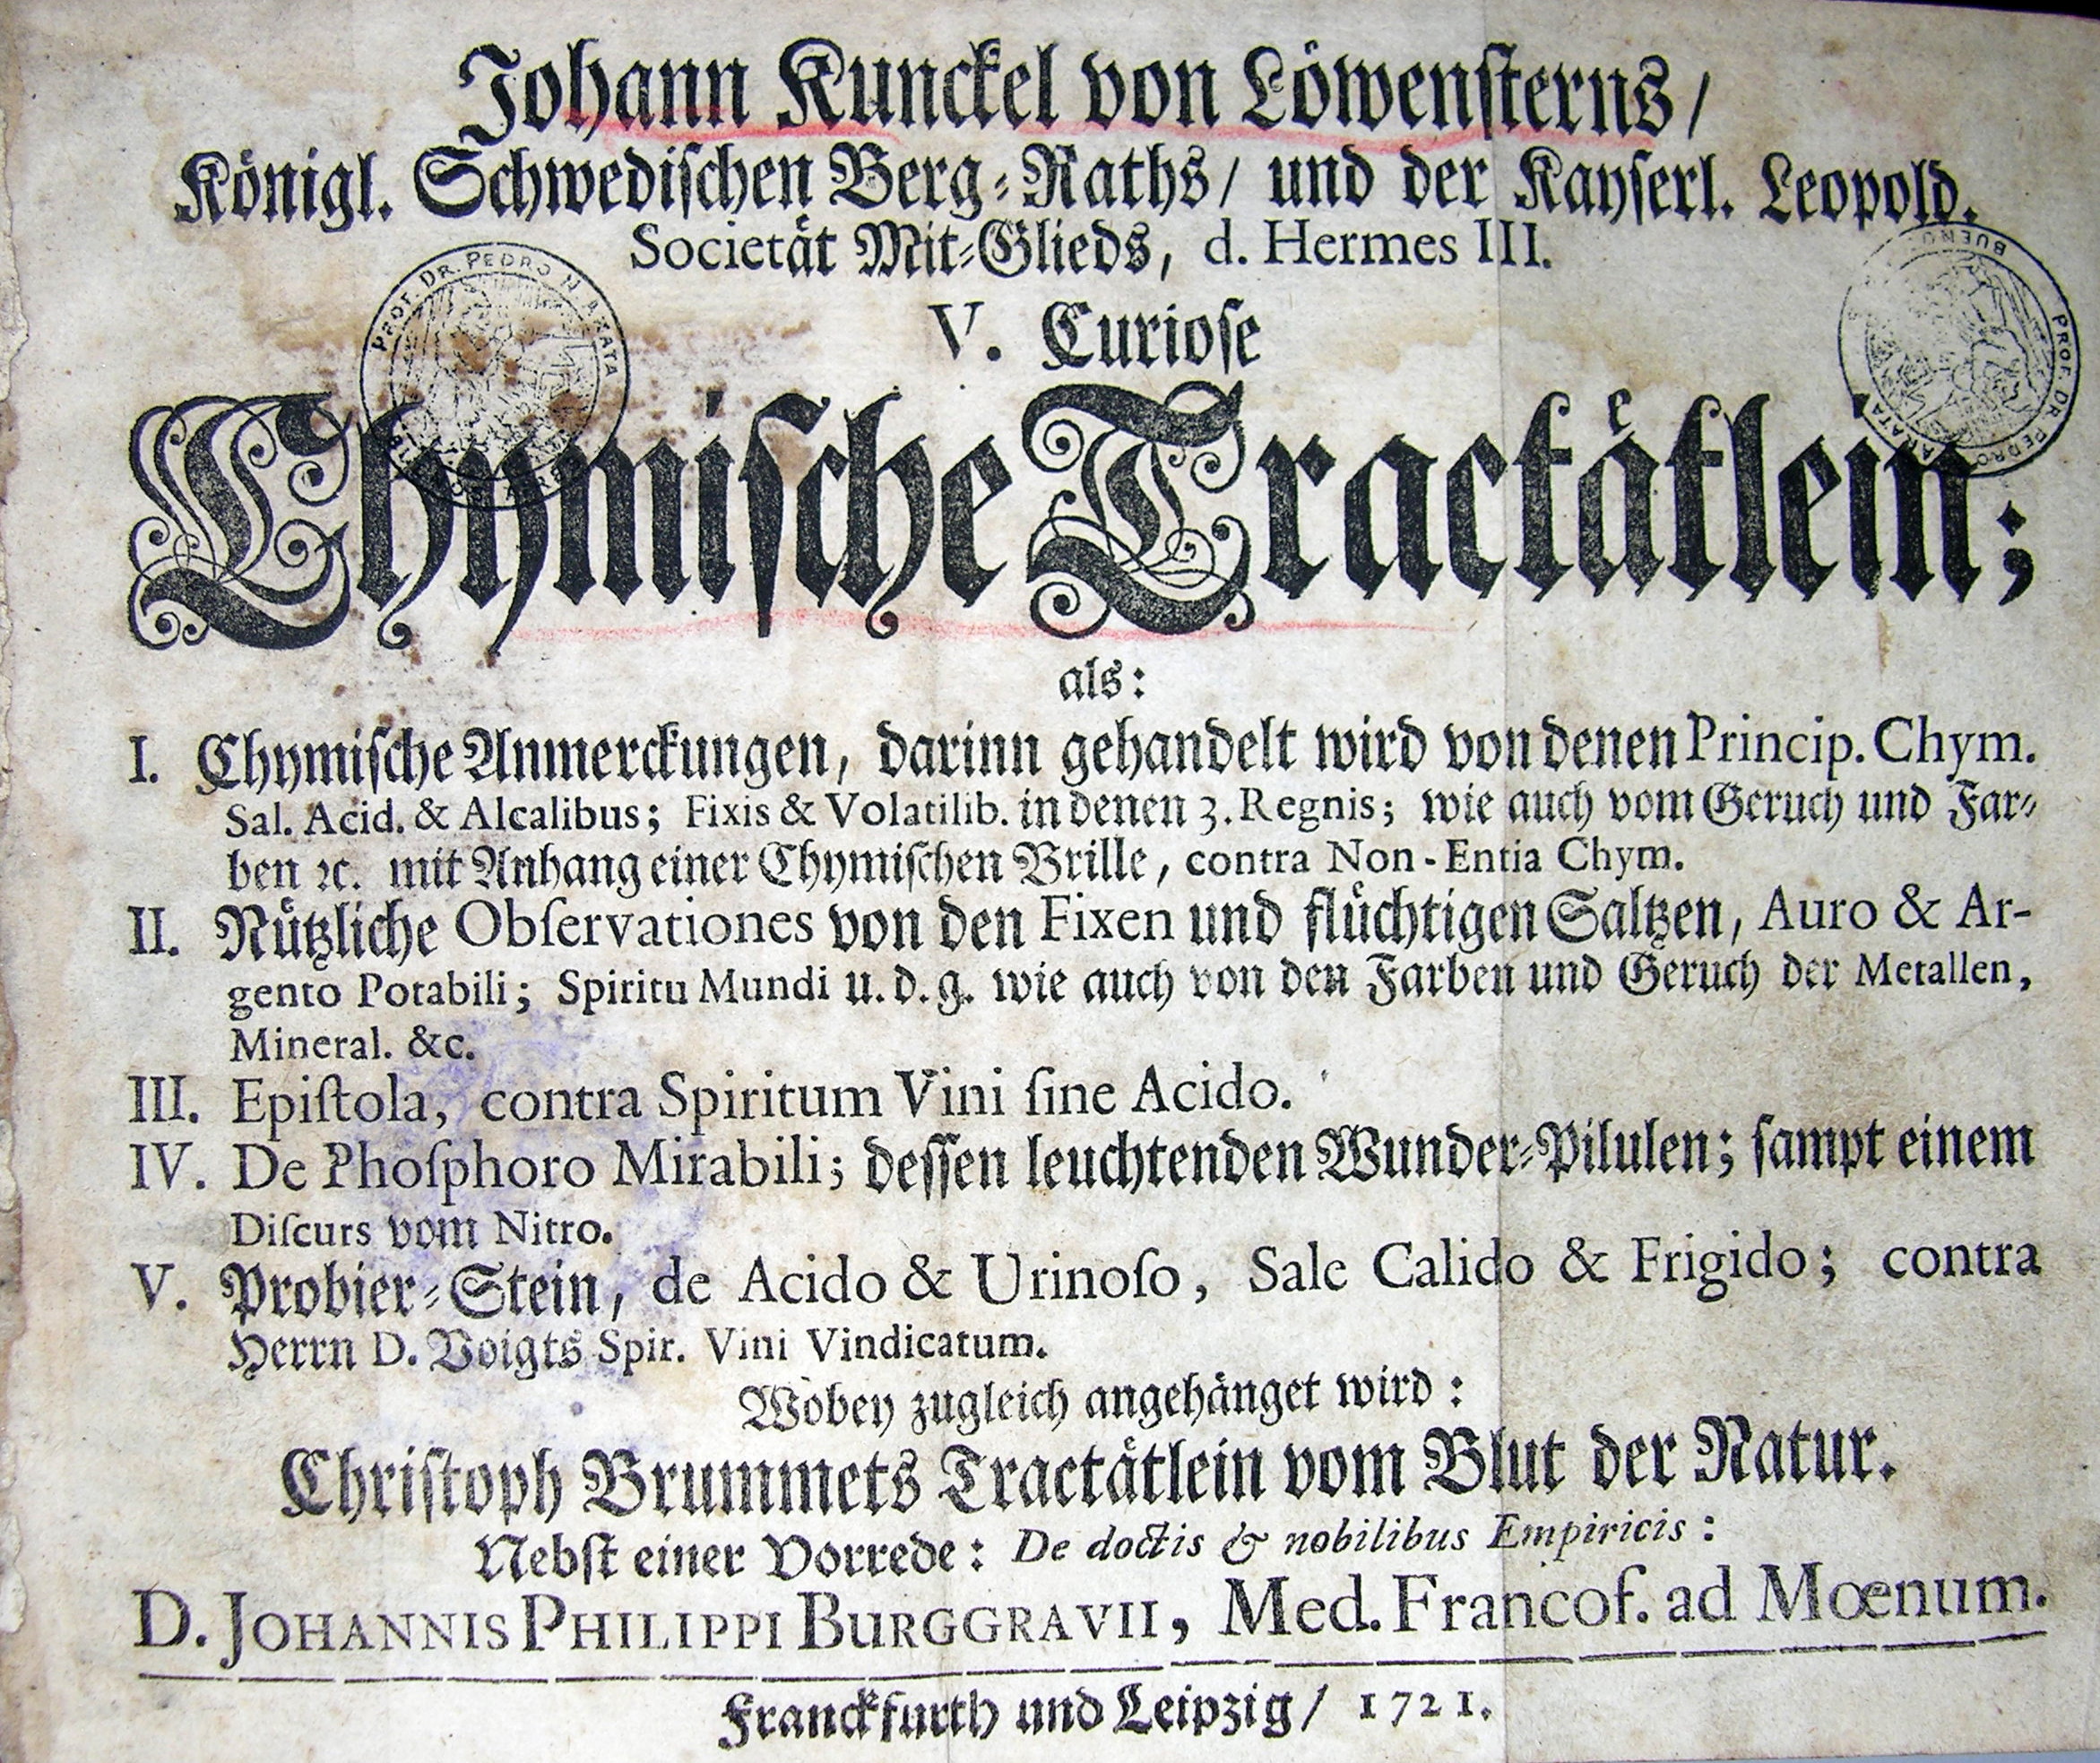 Johann Kunckel von Löwenſterns/
Königl. Schwediſchen Berg-Raths/ und der Kayſerl. Leopold.
Societät Mit-Glieds, d. Hermes III.
V. Curioſe
Chymiſche Tractätlein;
als:
I. Chymiſche Anmerckungen, darinn gehandelt wird von denen Princip. Chym.
Sal. Acid. & Alcalibus; Fixis & Volatilib. in denen 3. Regnis; wie auch vom Geruch und Far-
ben ꝛc. mit Anhang einer Chymiſchen Brille, contra Non-Entia Chym.
II. Nützliche Obſervationes von den Fixen und flüchtigen Saltzen, Auro & Ar-
gento Potabili; Spiritu Mundi u. d. g. wie auch von den Farben und Geruch der Metallen,
Mineral. &c.
III. Epiſtola, contra Spiritum Vini ſine Acido.
IV. De Phoſphoro Mirabili; deſſen leuchtenden Wunder-Pilulen; ſampt einem
Diſcurs vom Nitro.
V. Probier-Stein, de Acido & Urinoſo, Sale Calido & Frigido; contra
Herrn D. Voigts Spir. Vini Vindicatum.
Wobey zugleich angehänget wird:
Chriſtoph Brummets Tractätlein vom Blut der Natur.
Nebſt einer Vorrede: De doctis & nobilibus Empiricis:
D. JOHANNIS PHILIPPI BURGGRAVII, Med. Francof. ad Mœnum.
Franckfurth und Leipzig/ 1721.
PROF. DR. PEDRO N. ARATA
PROF. DR. PEDRO ARATA
BUENO